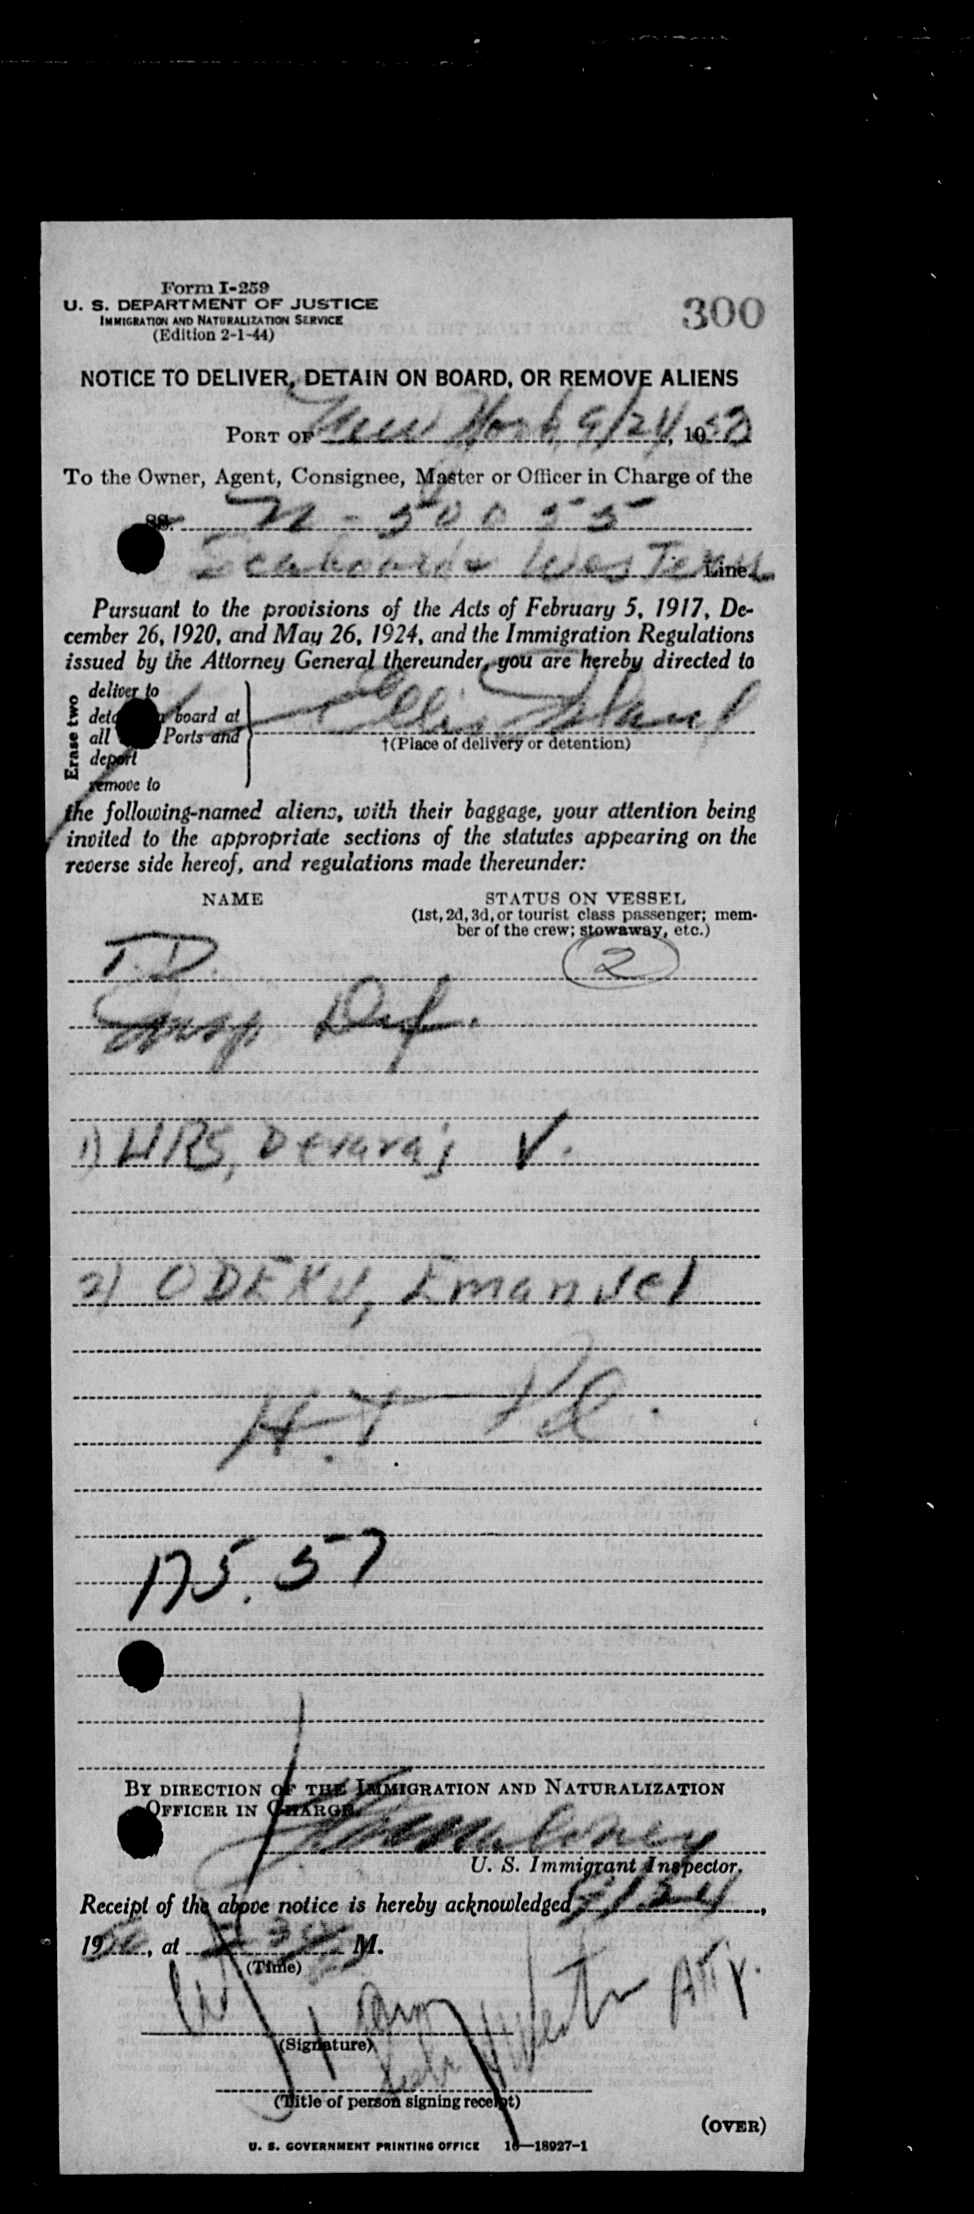 Form I-259
U. S. DEPARTMENT OF JUSTICE
IMMIGRATION AND NATURALIZATION SERVICE
(Edition 2-1-44)
300
NOTICE TO DELIVER, DETAIN ON BOARD, OR REMOVE ALIENS
PORT OF New York, 9/24, 1950
To the Owner, Agent, Consignee, Master or Officer in Charge of the
SS. N-50055
Seaboard & Western Line.
Pursuant to the provisions of the Acts of February 5, 1917, De-
cember 26, 1920, and May 26, 1924, and the Immigration Regulations
issued by the Attorney General thereunder, you are hereby directed to
Erase two
deliver to
board at
all Ports and
deport
remove to
Ellis Island
†(Place of delivery or detention)
the following-named aliens, with their baggage, your attention being
invited to the appropriate sections of the statutes appearing on the
reverse side hereof, and regulations made thereunder:
NAME
STATUS ON VESSEL
(1st, 2d, 3d, or tourist class passenger; mem-
ber of the crew; stowaway, etc.)
T.D. 2
Insp Def.
1) URS, Devaraj V.
2) ODEKU, Emanuel
H.T
175.57
BY DIRECTION OF THE IMMIGRATION AND NATURALIZATION
OFFICER IN CHARGE.
U. S. Immigrant Inspector.
Receipt of the above notice is hereby acknowledged 9/24,
1950, at M.
(Time)
(Signature)
(Title of person signing receipt)
(OVER)
U. S. GOVERNMENT PRINTING OFFICE 16—18927-1